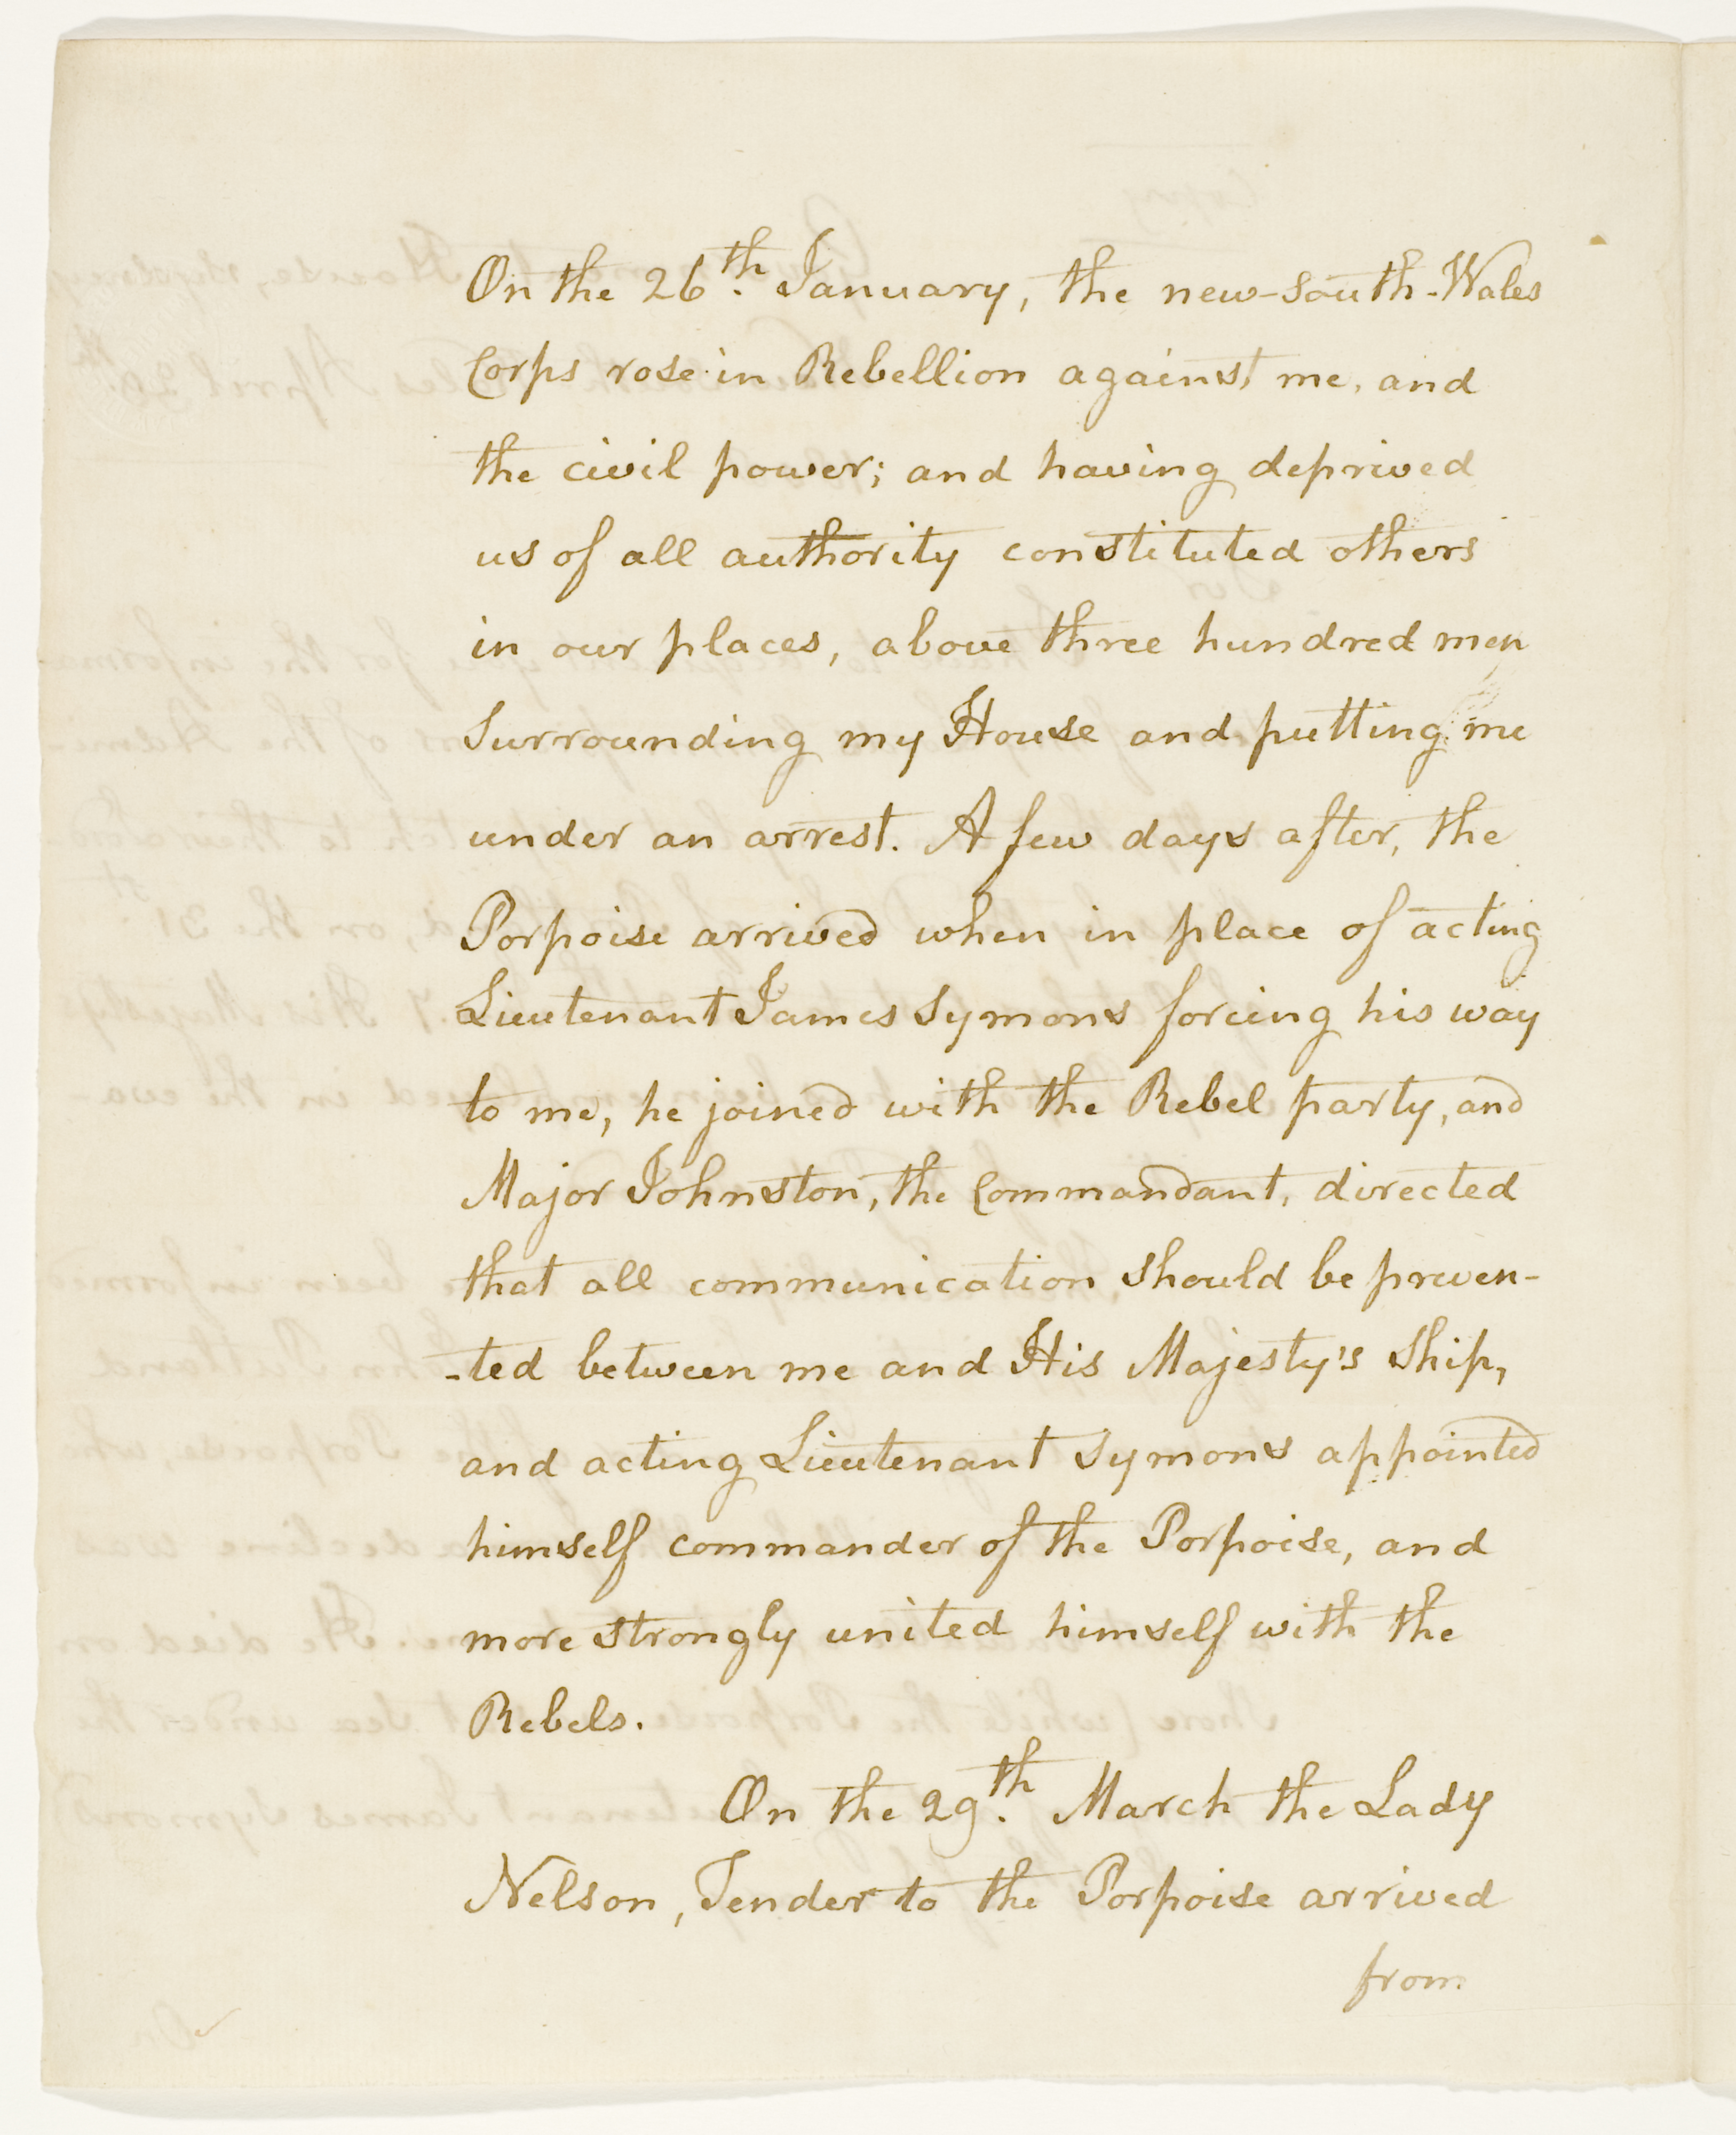 On the 26th. January, the new-south-Wales
Corps rose in Rebellion against me, and
the civil power; and having deprived
us of all authority constituted others
in our places, above three hundred men
Surrounding my House and putting me
under an arrest. A few days after, the
Porpoise arrived when in place of acting
Lieutenant James Symons forcing his way
to me, he joined with the Rebel party, and
Major Johnston, the Commandant, directed
that all communication should be preven-
-ted between me and His Majesty's Ship,
and acting Lieutenant Symons appointed
himself commander of the Porpoise, and
more strongly united himself with the
Rebels.
On the 29th. March the Lady
Nelson, Tender to the Porpoise arrived
from